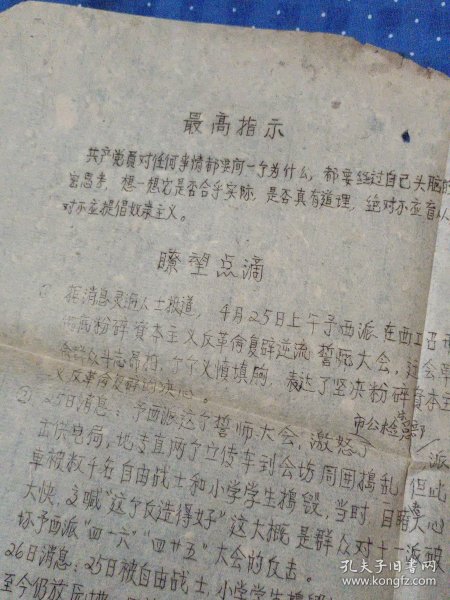 最高指示
共产党员对任何事情都要问一个为什么，都要经过自己头脑的
密思考，想一想它是否合乎实际，是否真有道理，绝对不应盲从
对不应提倡奴隶主义。
瞭望点滴
① 据消息灵通人士报道，4月25日上午予西派在西工召
彻底粉碎资本主义反革命复辟逆流誓死大会，这会
群众斗志昂扬，个个义愤填膺，表达了坚决粉碎资本主
义反革命复辟的决心。
② 25日消息：予西派这个誓师大会，激怒了市公检
出供电局，地专直两个立传车到会场周围捣乱，但此
车被数千名自由战士和小学学生捣毁，当时，目睹
大快，交喊“这个反造得好”这大概是群众对十一派破
坏予西派“四十六”“四廿五”大会的反击。
26日消息：25日被自由战士，小学学生
至今仍放
孔夫子旧书网